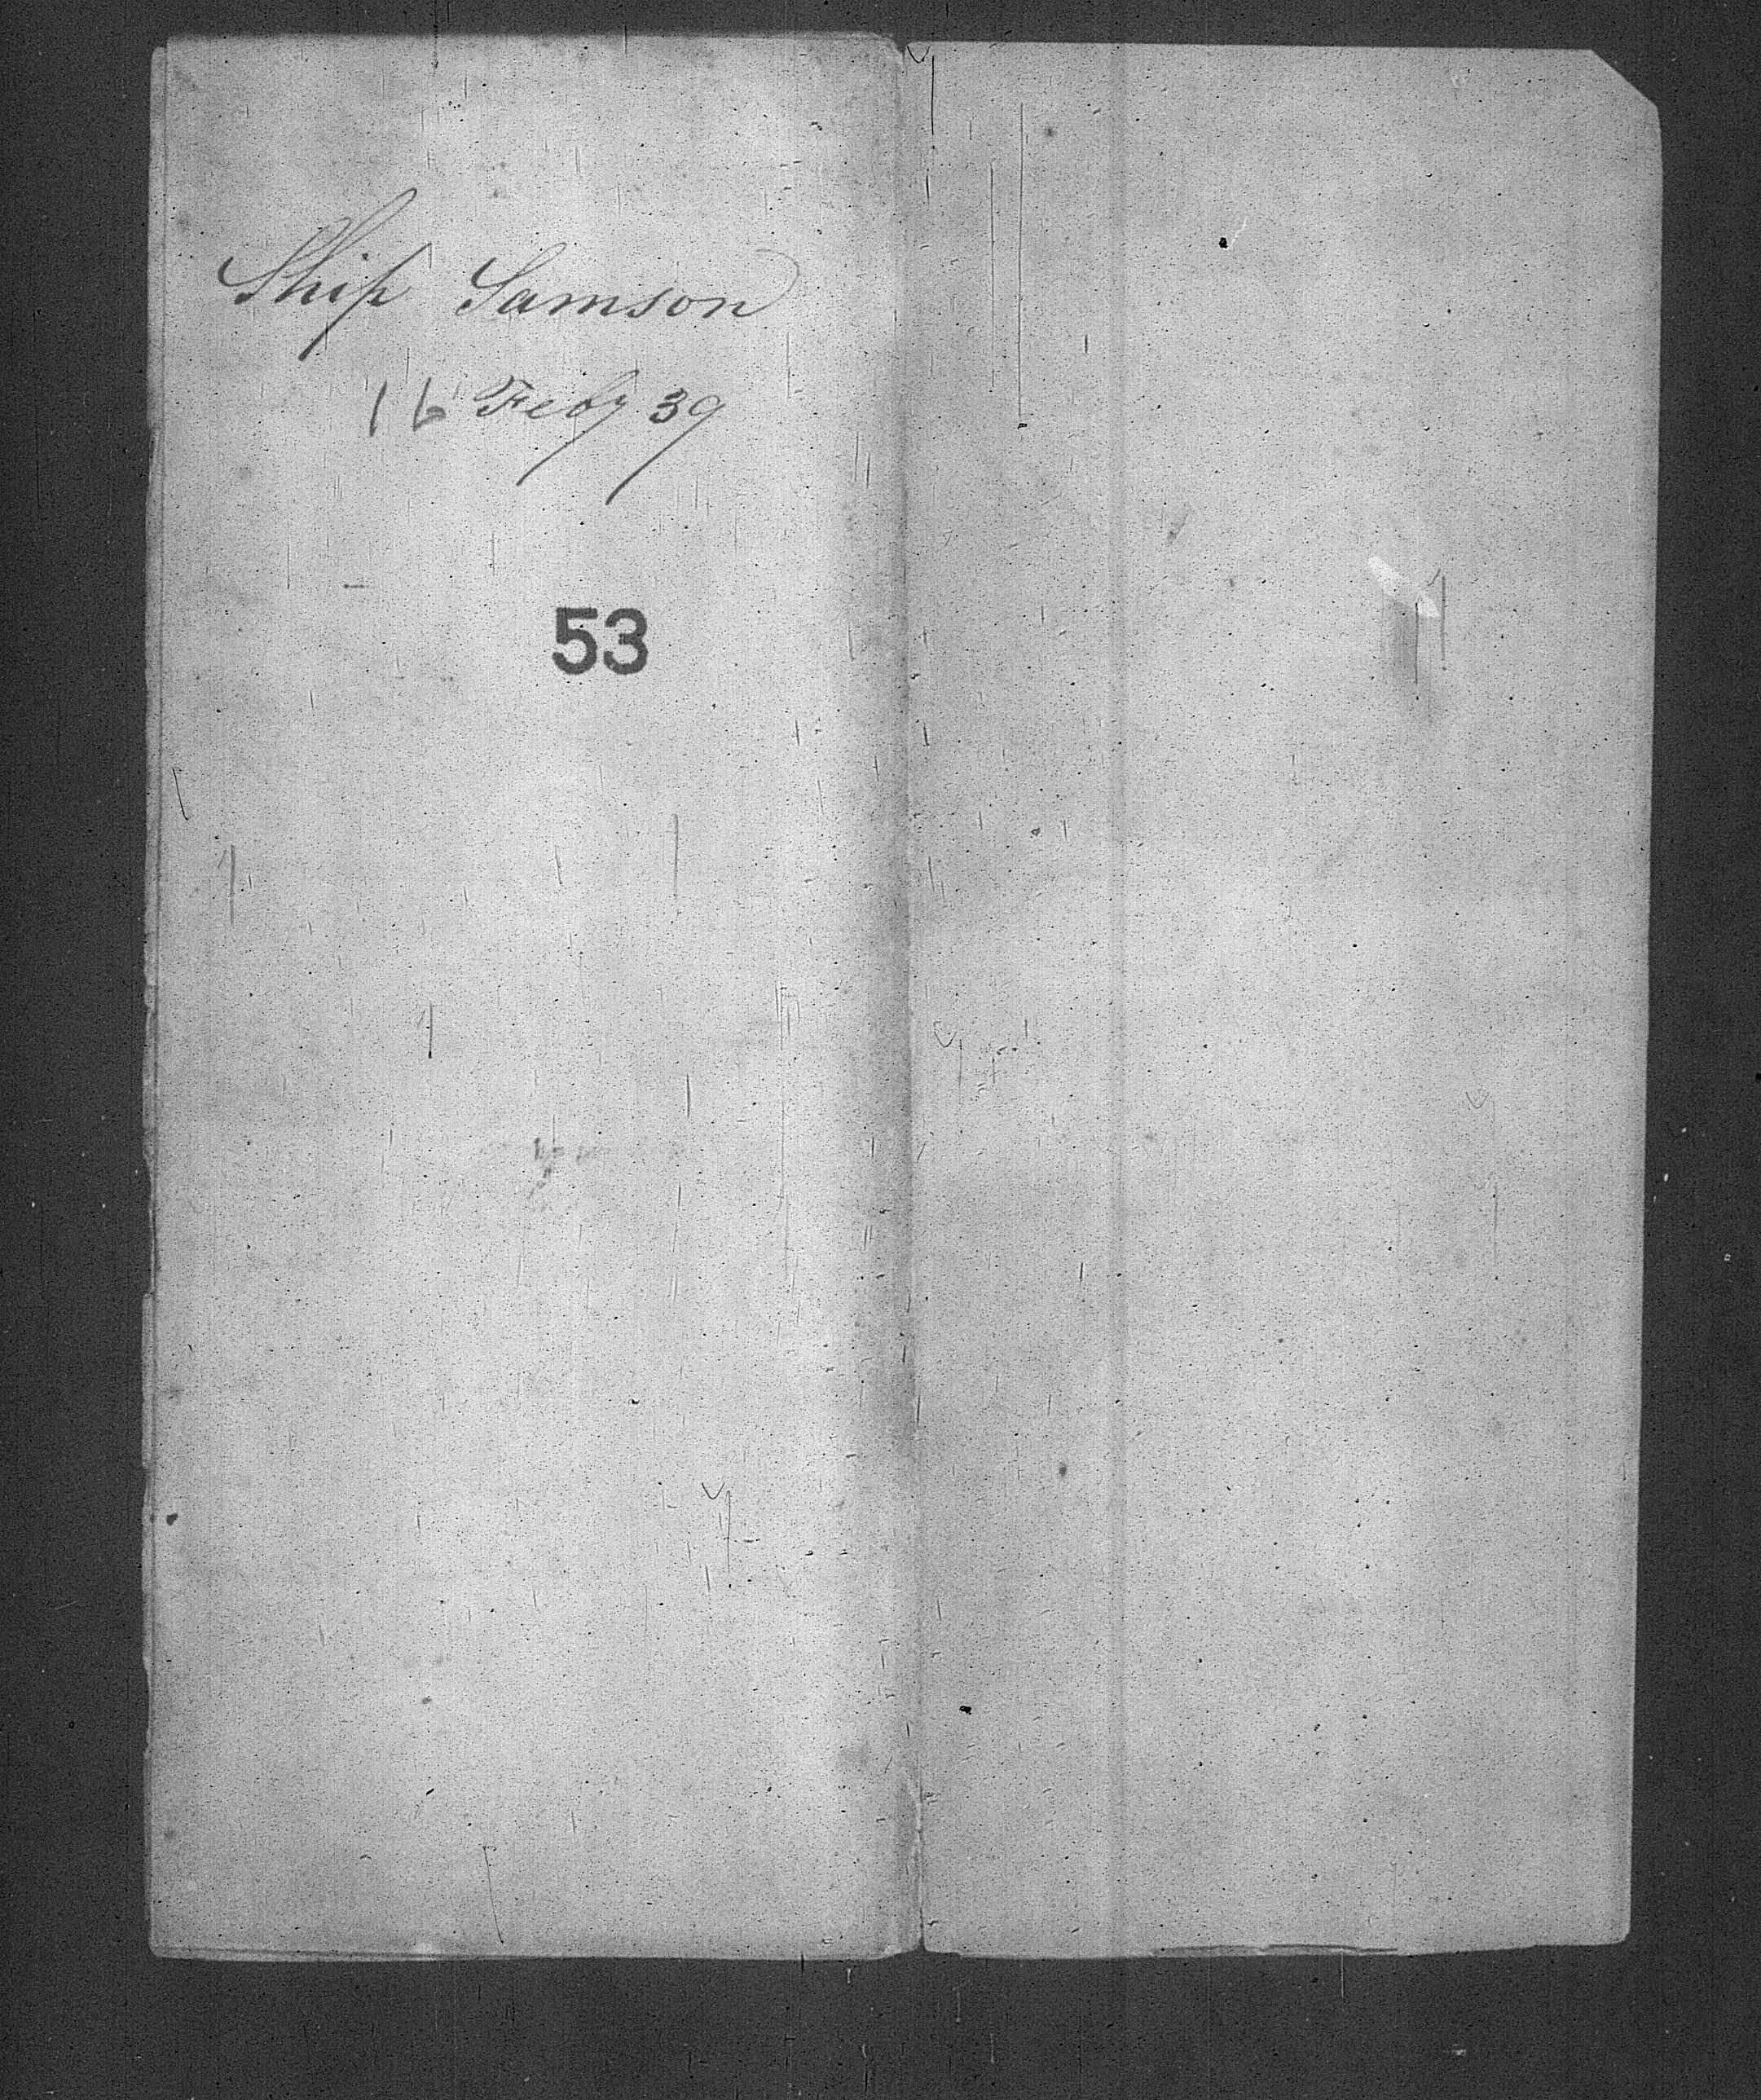 Ship Samson
16 Feby 39
53